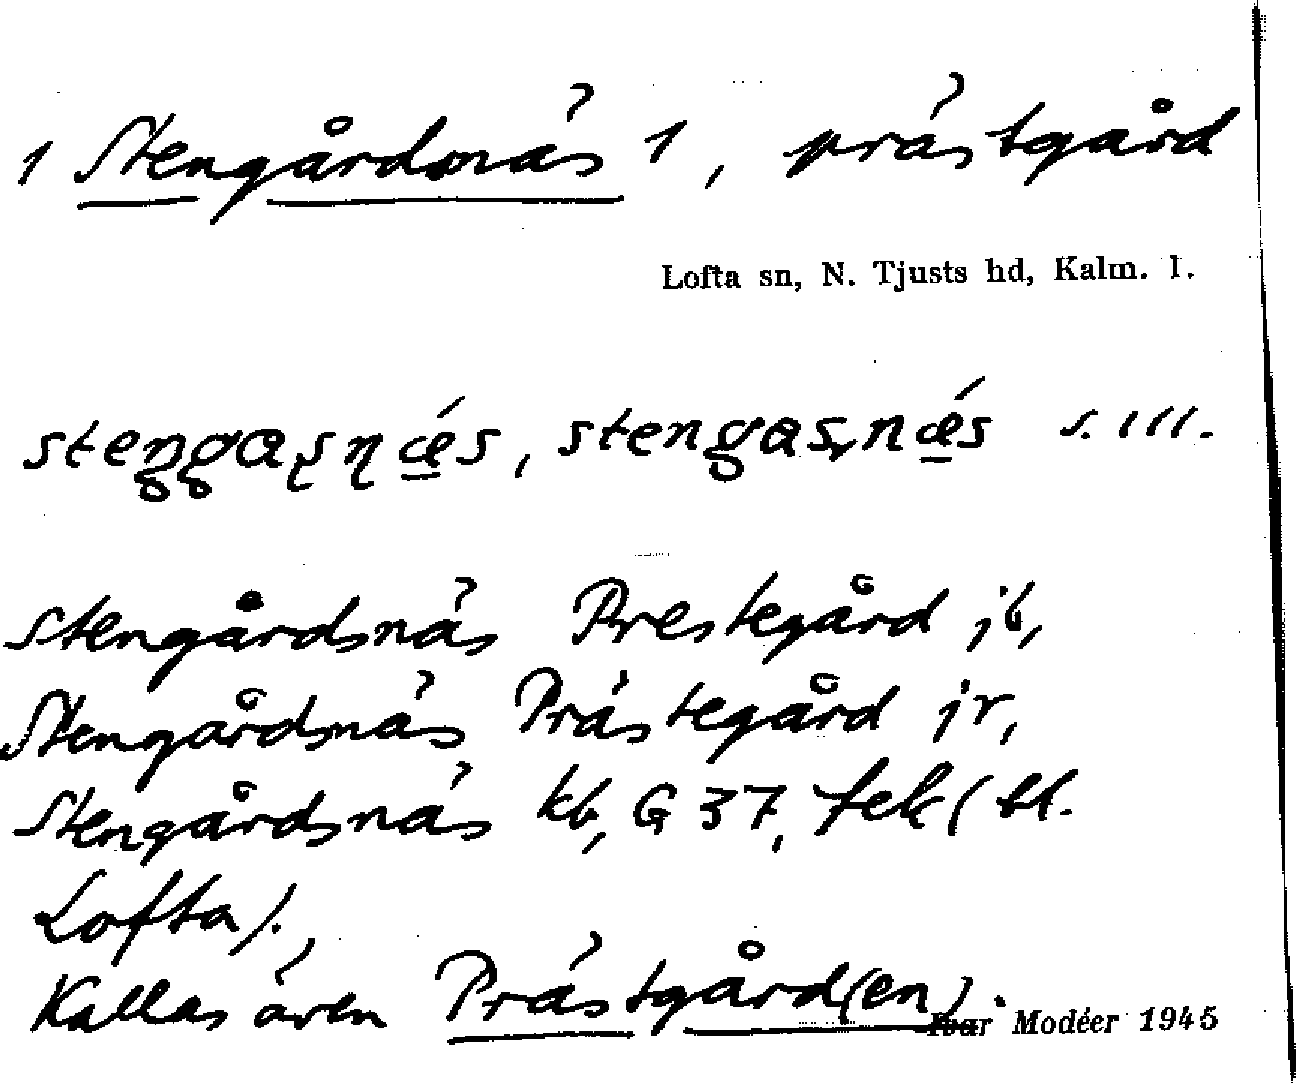 1 Stengårdsnäs 1, prästgård
Lofta sn, N. Tjusts hd, Kalm. l.
stengasnæ´s, stengasnæ´s s. III.
Stengårdsnäs Prestegård jb,
Stengårdsnäs Prästegård jr,
Stengårdsnäs kb, G 37, fek (bl.
Lofta).
Kallas även Prästgård(en).
Ivar Modéer 1945